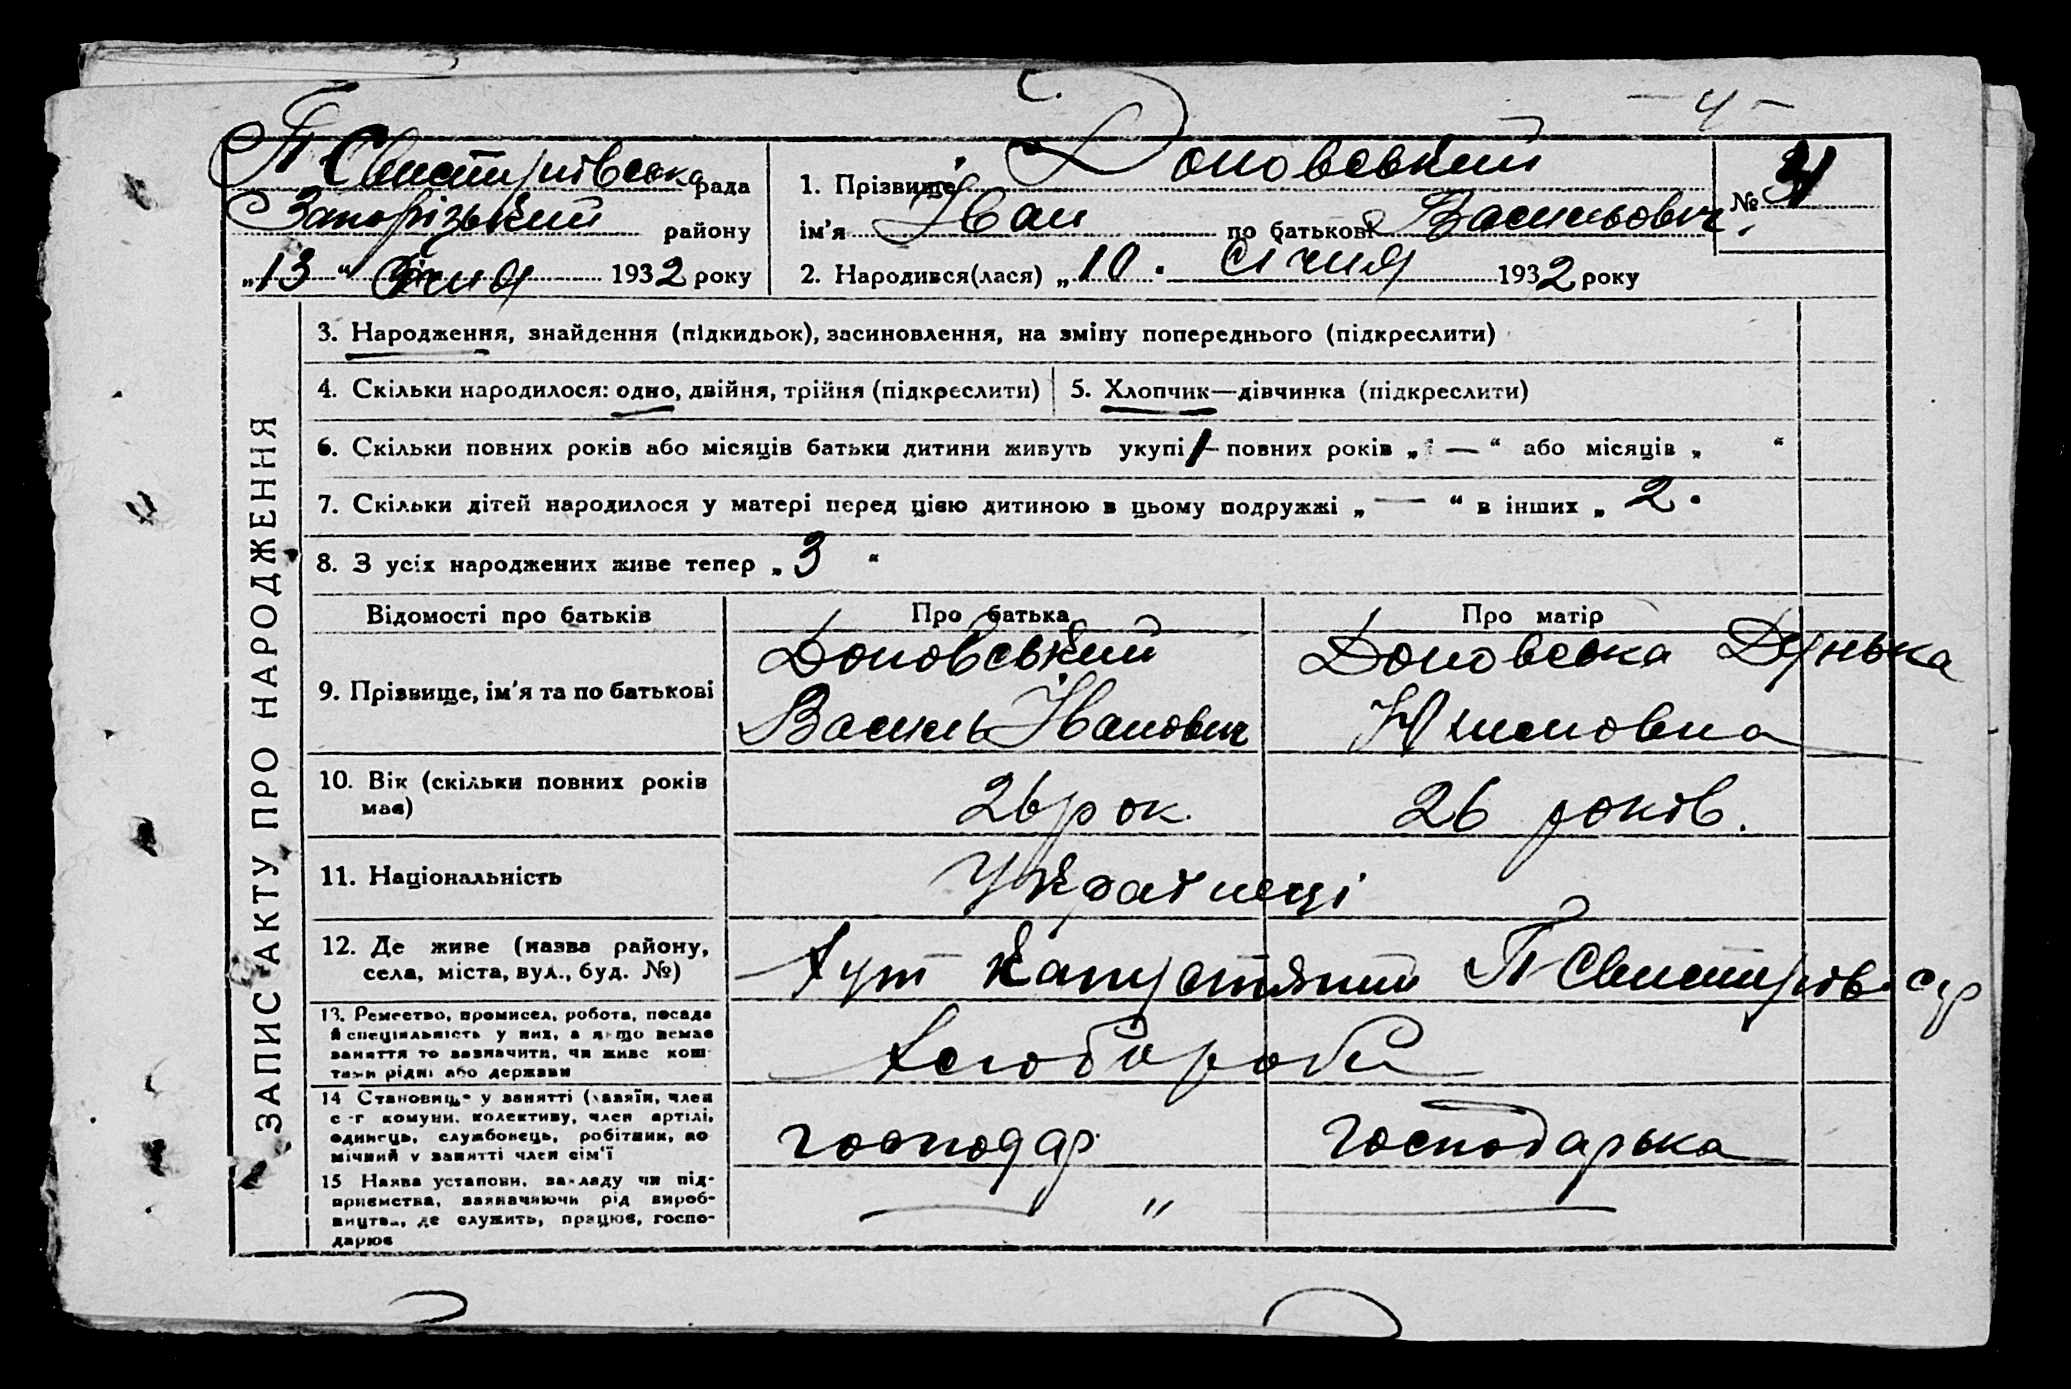 – 4 –
П Свистунівська рада
Запорізький району
„13“ Січня 1932 року
1. Прізвище Доновський
ім'я Іван по батькові Васильович
№
2. Народився(лася) „10. січня 1932 року
ЗАПИС АКТУ ПРО НАРОДЖЕННЯ
3. Народження, знайдення (підкидьок), засиновлення, на зміну попереднього (підкреслити)
4. Скільки народилося: одно, двійня, трійня (підкреслити)
5. Хлопчик—дівчинка (підкреслити)
6. Скільки повних років або місяців батьки дитини живуть укупі 1 – повних років „ — “ або місяців „ “
7. Скільки дітей народилося у матері перед цією дитиною в цьому подружжі „ — “ в інших „ 2 .
8. З усіх народжених живе тепер „ 3 “
Відомості про батьків
Про батька
Про матір
9. Прізвище, ім'я та по батькові
Доновський
Василь Іванович
Доновська Дунька
10. Вік (скільки повних років має)
26 рок.
26 років.
11. Національність
Українці
12. Де живе (назва району,
села, міста, вул., буд. №)
Хут Капустяний П Свистунів. с/р
13. Ремество, промисел, робота, посада
й спеціяльність у них, а якщо немає
заняття то зазначити, чи живе кош-
тами рідні або держави
Хлібороби
14 Становище у занятті (хазяїн, член
с-г комуни, колективу, член артілі,
одинець, службовець, робітник, по-
мічний у занятті член сім'ї
господар
господарька
15 Назва установи, закладу чи під-
приємства, зазначаючи рід вироб-
ництва, де служить, працює, госпо-
дарює
— „ —